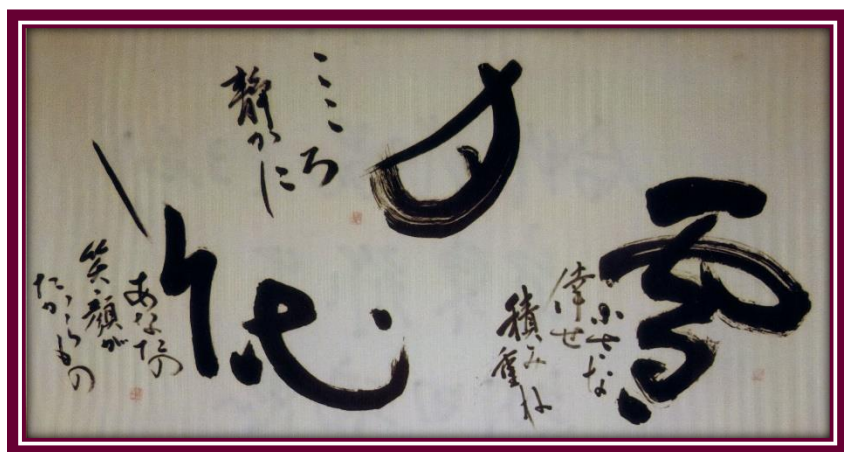 雪
小さな
倖せ
積み重ね
月
こころ
静かに
花
あなたの
笑顔が
たからもの